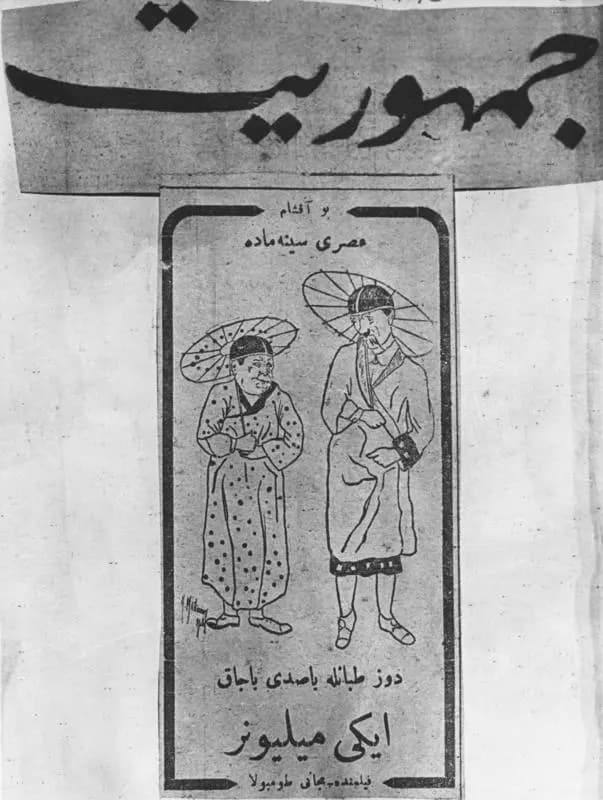 جمهوریت
بو آقشام
عصری سینه‌ماده
دوز طبانله باصدی باجاق
ایکی میلیونر
فیلمنده - مجانی طومبولا